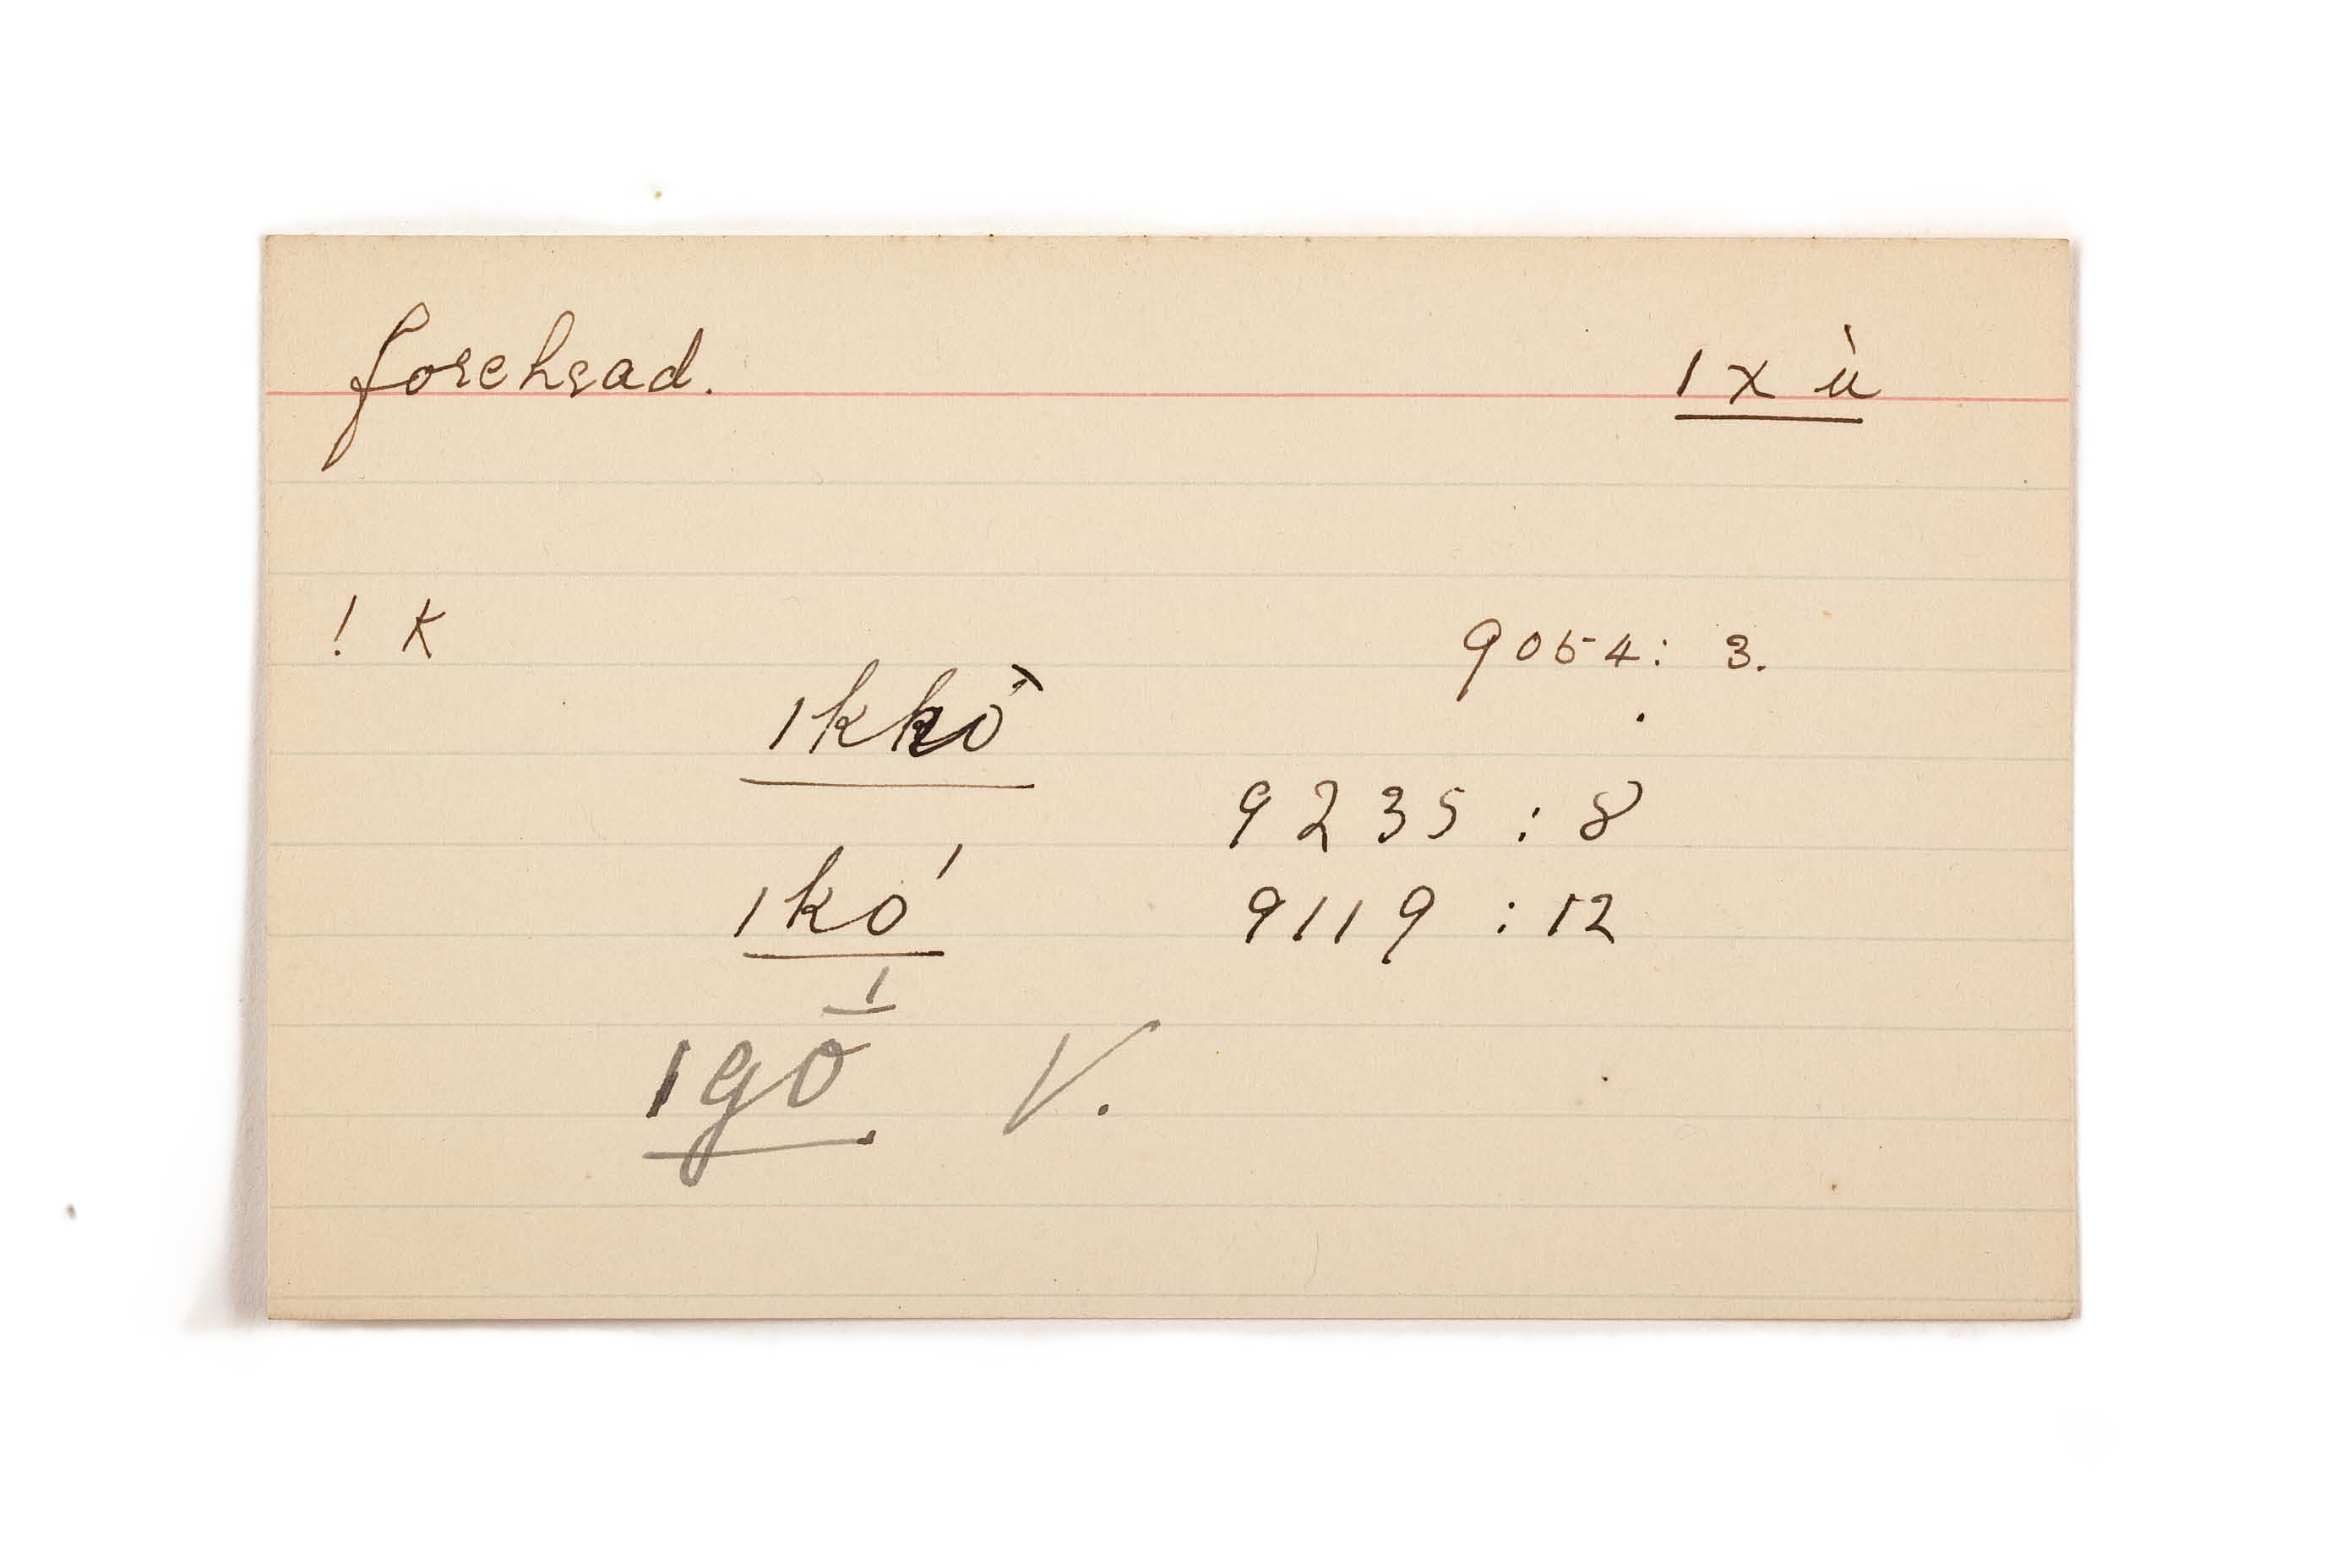 forehead. ǀxù
! K
9054: 3.
ǀkkò
9235 : 8
ǀkó 9119 : 12
ǀgṓ V.